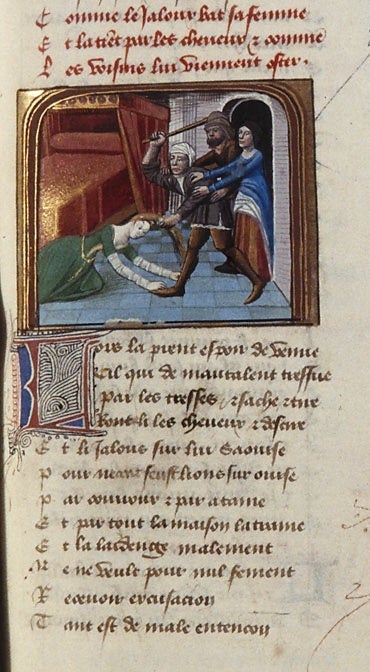 Comme le Jaloux bat sa femme
Et la tiẽt par les cheueux & comme
Les voisins lui viennent oster.
Lors la prent espoir de venue
Cil qui de mautalent tressue
Par les tresses & sache & tire
Ront li les cheueux & descire
Et li Jaloux sur lui saouise
Pour neant feust lions sur ouise
Par couroux & par ataine
Et par tout la maison la traine
Et la laidenge malement
Ne ne veult pour nul serment
Receuoir excusacion
Tant est de male entencon